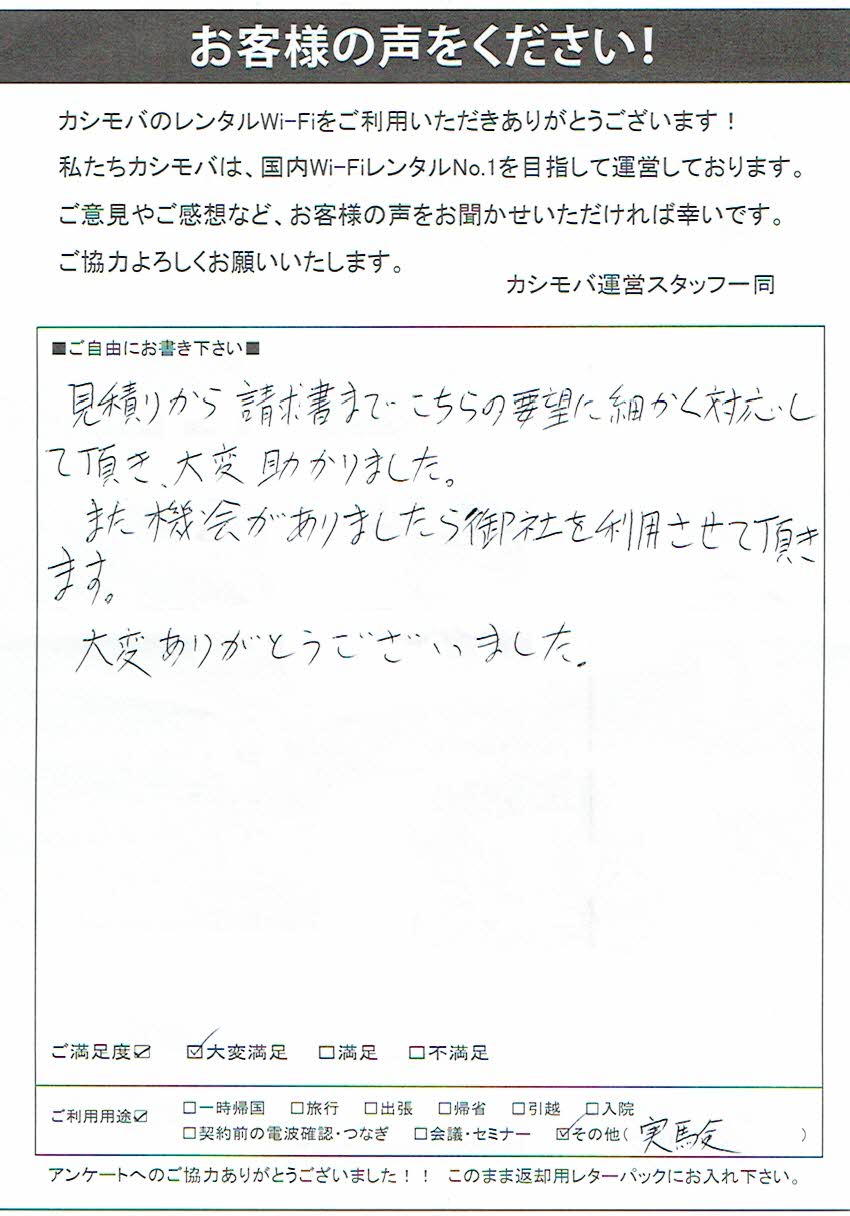 お客様の声をください!
カシモバのレンタルWi-Fiをご利用いただきありがとうございます!
私たちカシモバは、国内Wi-FiレンタルNo.1を目指して運営しております。
ご意見やご感想など、お客様の声をお聞かせいただければ幸いです。
ご協力よろしくお願いいたします。
カシモバ運営スタッフ一同
■ご自由にお書き下さい■
見積りから請求書までこちらの要望に細かく対応し
て頂き、大変助かりました。
また機会がありましたら御社を利用させて頂き
ます。
大変ありがとうございました。
ご満足度☑ ☑大変満足 □満足 □不満足
ご利用用途☑ □一時帰国 □旅行 □出張 □帰省 □引越 □入院
□契約前の電波確認・つなぎ □会議・セミナー ☑その他( 実験 )
アンケートへのご協力ありがとうございました!! このまま返却用レターパックにお入れ下さい。